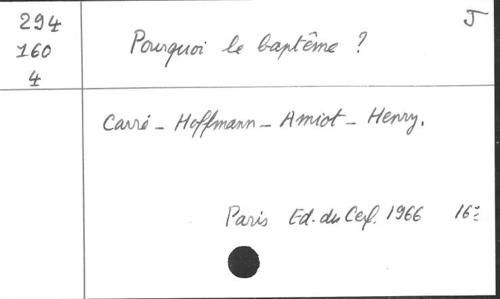 294
160
4
J
Pourquoi le baptême ?
Carré - Hoffmann - Amiot - Henry.
Paris Ed. du Cerf. 1966 16°